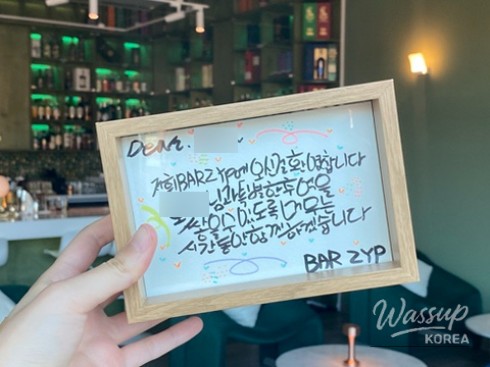 Dear.
저희 BAR ZYP에 오신걸 환영합니다
님과 특별한 추억을
쌓을 수 있도록 머무는
시간동안 함께 하겠습니다
BAR ZYP
Wassup
KOREA